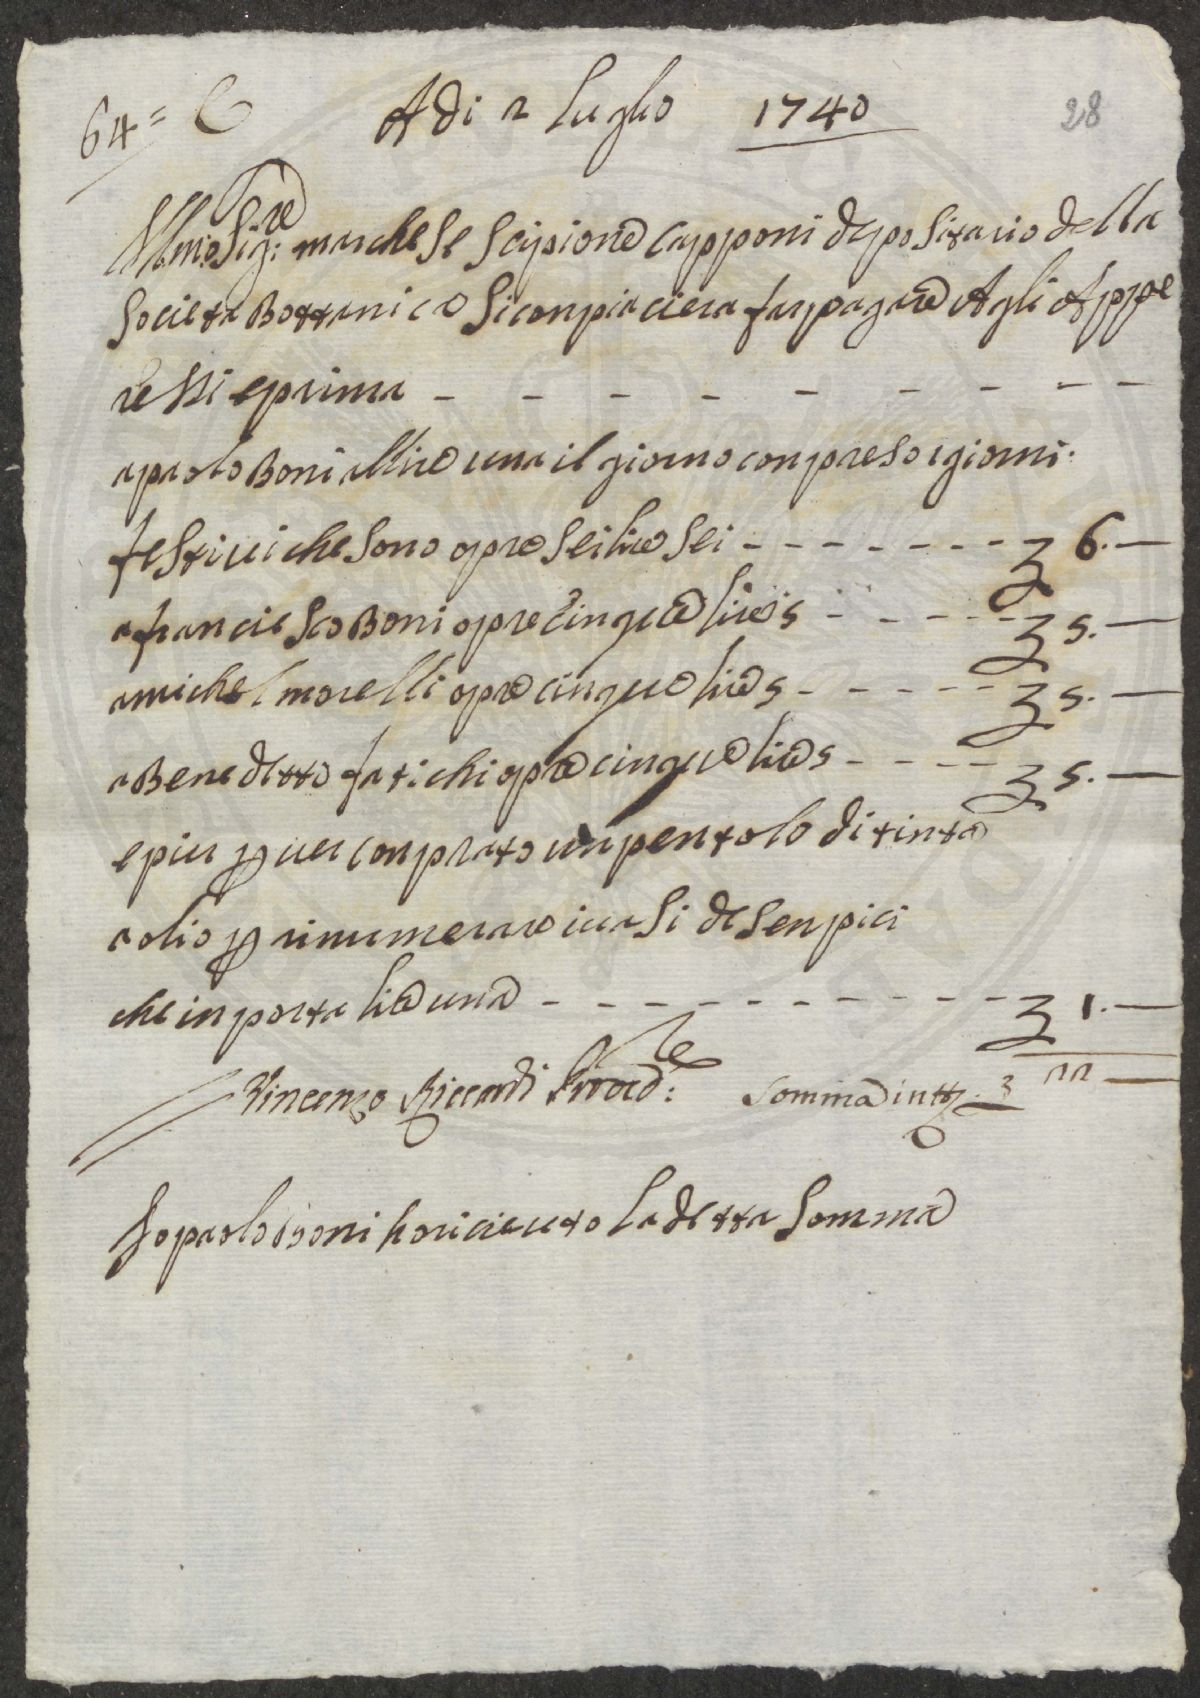 64= C
Adi 2 Luglio 1740
28
Illmo: Sig:re marchese Scipione Capponi depositario della
Societa Bottanica si conpiaciera far pagare Agli Appe
resti e prima - - - - - - - - -
a paolo Boni llire una il giorno conpreso i giorni
festiui che sono opre sei lire sei - - - - - - - - 6.—
a franciesco Boni opre cinque lire 5 - - - - - 5.—
a michel morelli opre cinque lire 5 - - - - - 5.—
a Benedetto fatichi opre cinque lire 5 - - - - 5.—
e piu p auer conprato un pentolo di tinta
a olio p rinumerare i uasi de senpici
che inporta lire una - - - - - - - - - - 1.—
Vincenzo Riccardi Proved:re Somma in tto 22 —
Io paolo Boni ho riceuuto la detta Somma